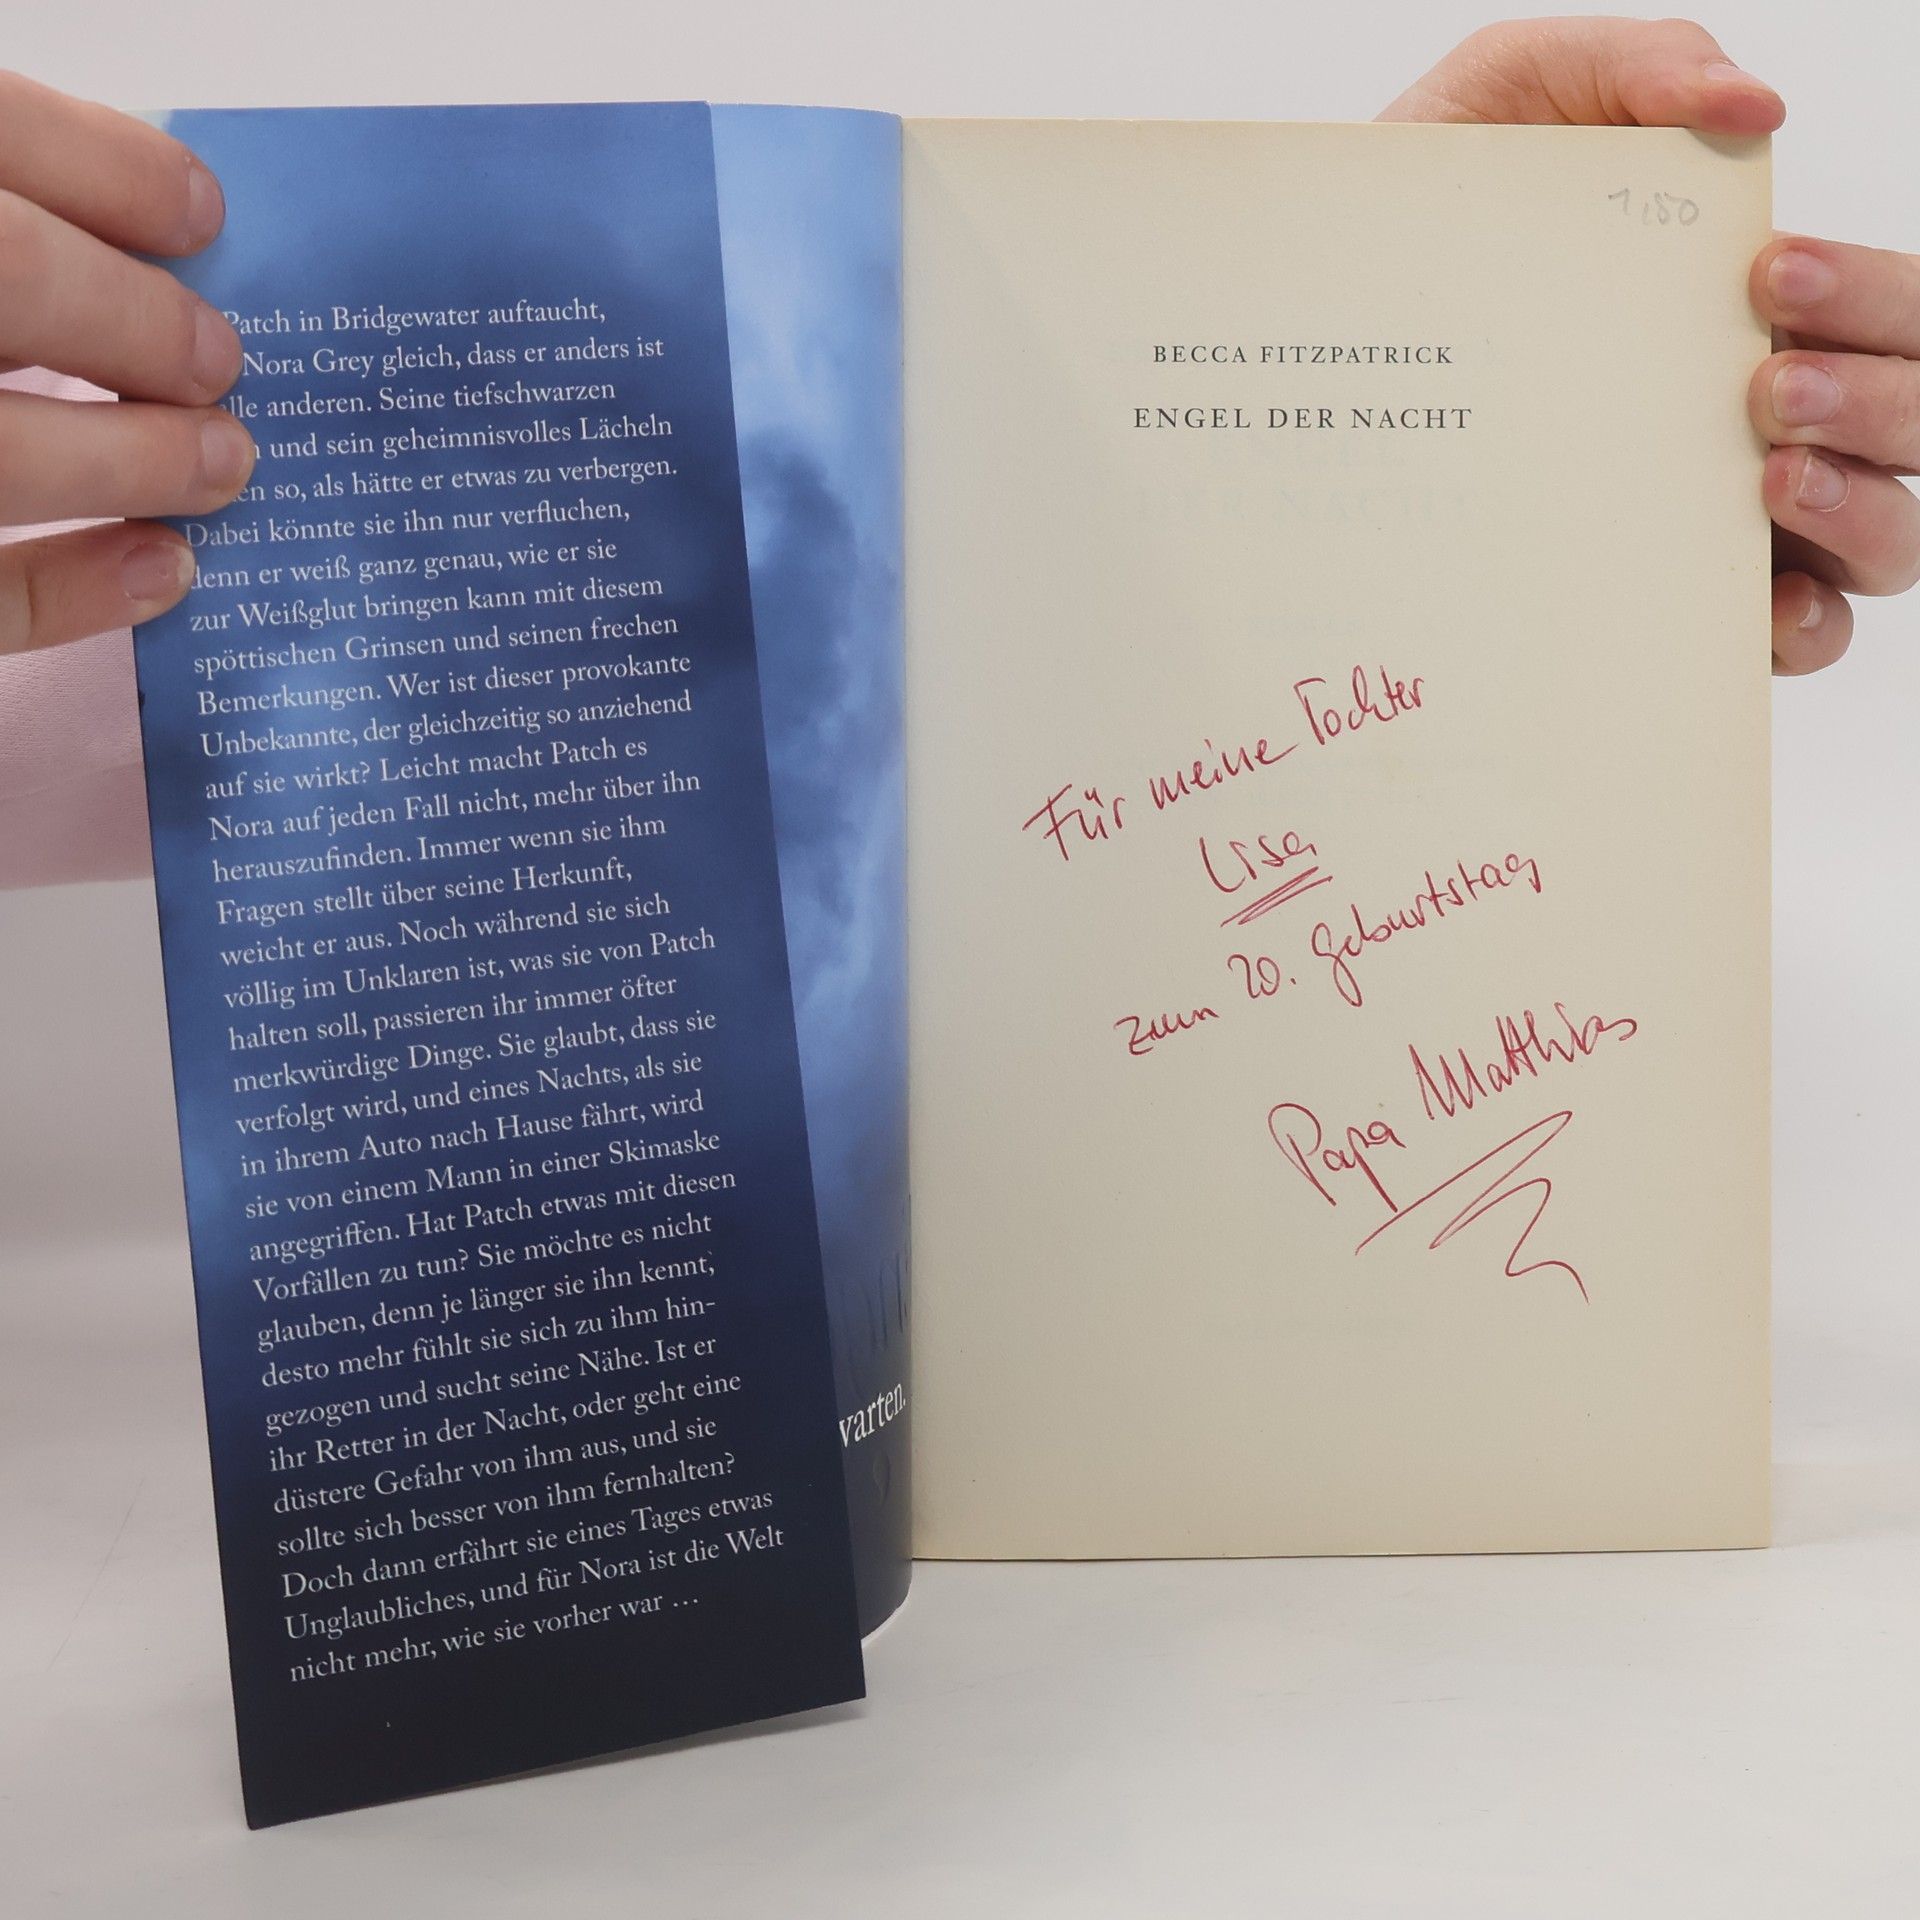 Patch in Bridgewater auftaucht,
Nora Grey gleich, dass er anders ist
alle anderen. Seine tiefschwarzen
und sein geheimnisvolles Lächeln
so, als hätte er etwas zu verbergen.
Dabei könnte sie ihn nur verfluchen,
denn er weiß ganz genau, wie er sie
zur Weißglut bringen kann mit diesem
spöttischen Grinsen und seinen frechen
Bemerkungen. Wer ist dieser provokante
Unbekannte, der gleichzeitig so anziehend
auf sie wirkt? Leicht macht Patch es
Nora auf jeden Fall nicht, mehr über ihn
herauszufinden. Immer wenn sie ihm
Fragen stellt über seine Herkunft,
weicht er aus. Noch während sie sich
völlig im Unklaren ist, was sie von Patch
halten soll, passieren ihr immer öfter
merkwürdige Dinge. Sie glaubt, dass sie
verfolgt wird, und eines Nachts, als sie
in ihrem Auto nach Hause fährt, wird
sie von einem Mann in einer Skimaske
angegriffen. Hat Patch etwas mit diesen
Vorfällen zu tun? Sie möchte es nicht
glauben, denn je länger sie ihn kennt,
desto mehr fühlt sie sich zu ihm hin-
gezogen und sucht seine Nähe. Ist er
ihr Retter in der Nacht, oder geht eine
düstere Gefahr von ihm aus, und sie
sollte sich besser von ihm fernhalten?
Doch dann erfährt sie eines Tages etwas
Unglaubliches, und für Nora ist die Welt
nicht mehr, wie sie vorher war …
varten.
1,80
BECCA FITZPATRICK
ENGEL DER NACHT
Für meine Tochter
Lisa
zum 20. Geburtstag
Papa Matthias